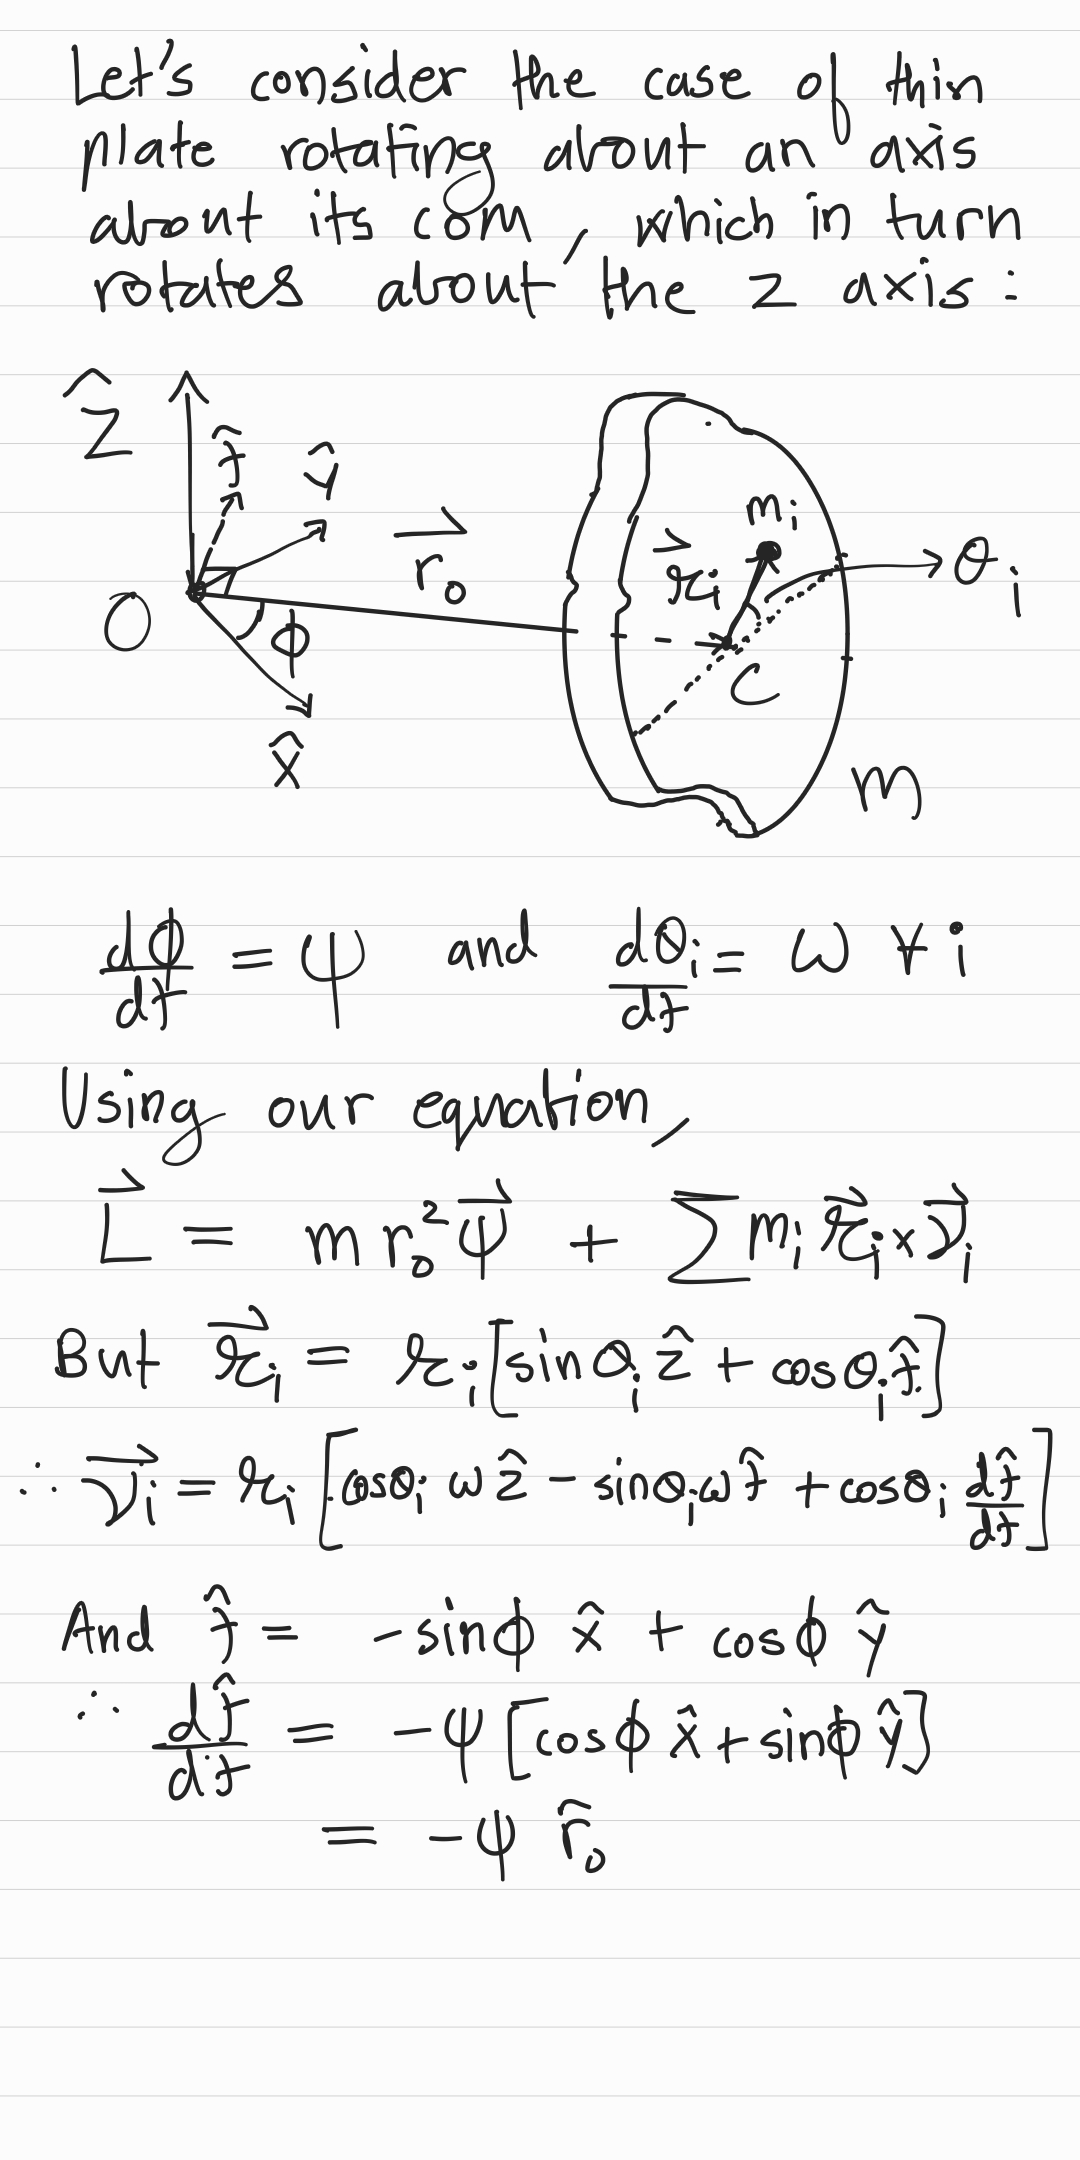 Let's consider the case of thin
plate rotating about an axis
about its com, which in turn
rotates about the z axis:
ẑ
t̂
ŷ
r⃗₀
mᵢ
𝓇⃗ᵢ
θᵢ
O
ϕ
C
x̂
m
dϕ/dt = ψ and dθᵢ/dt = ω ∀ i
Using our equation,
L⃗ = m r₀² ψ⃗ + ∑ mᵢ 𝓇⃗ᵢ × v⃗ᵢ
But 𝓇⃗ᵢ = 𝓇ᵢ [sinθᵢ ẑ + cosθᵢ t̂]
∴ v⃗ᵢ = 𝓇ᵢ [cosθᵢ ω ẑ - sinθᵢ ω t̂ + cosθᵢ dt̂/dt]
And t̂ = -sinϕ x̂ + cosϕ ŷ
∴ dt̂/dt = -ψ [cosϕ x̂ + sinϕ ŷ]
= -ψ r̂₀